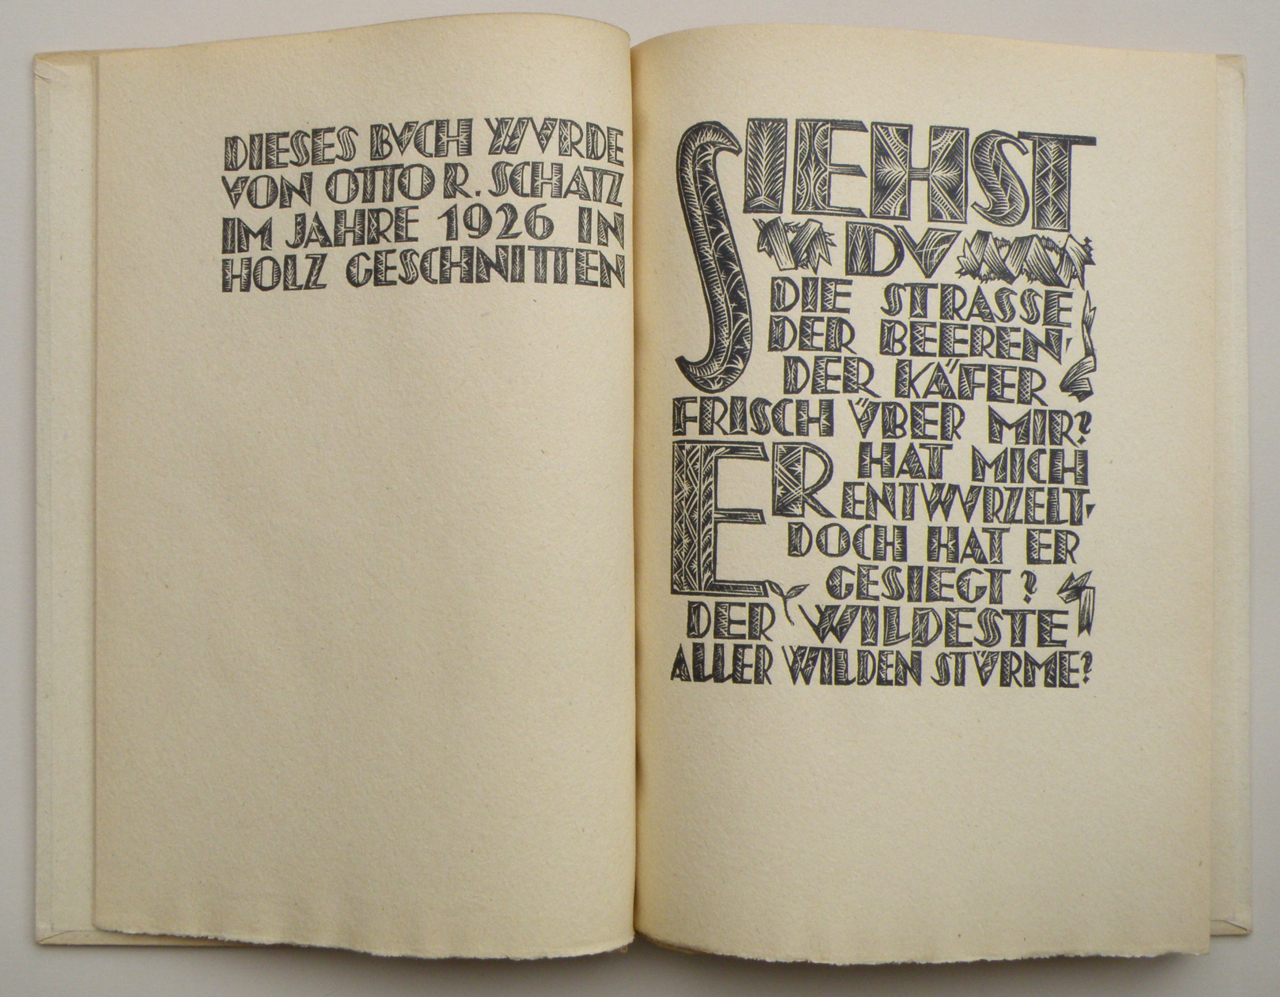 DIESES BVCH WVRDE
VON OTTO R. SCHATZ
IM JAHRE 1926 IN
HOLZ GESCHNITTEN
SIEHST
DV
DIE STRASSE
DER BEEREN,
DER KÄFER
FRISCH ÜBER MIR?
ER HAT MICH
ENTWVRZELT.
DOCH HAT ER
GESIEGT?
DER WILDESTE
ALLER WILDEN STÜRME?